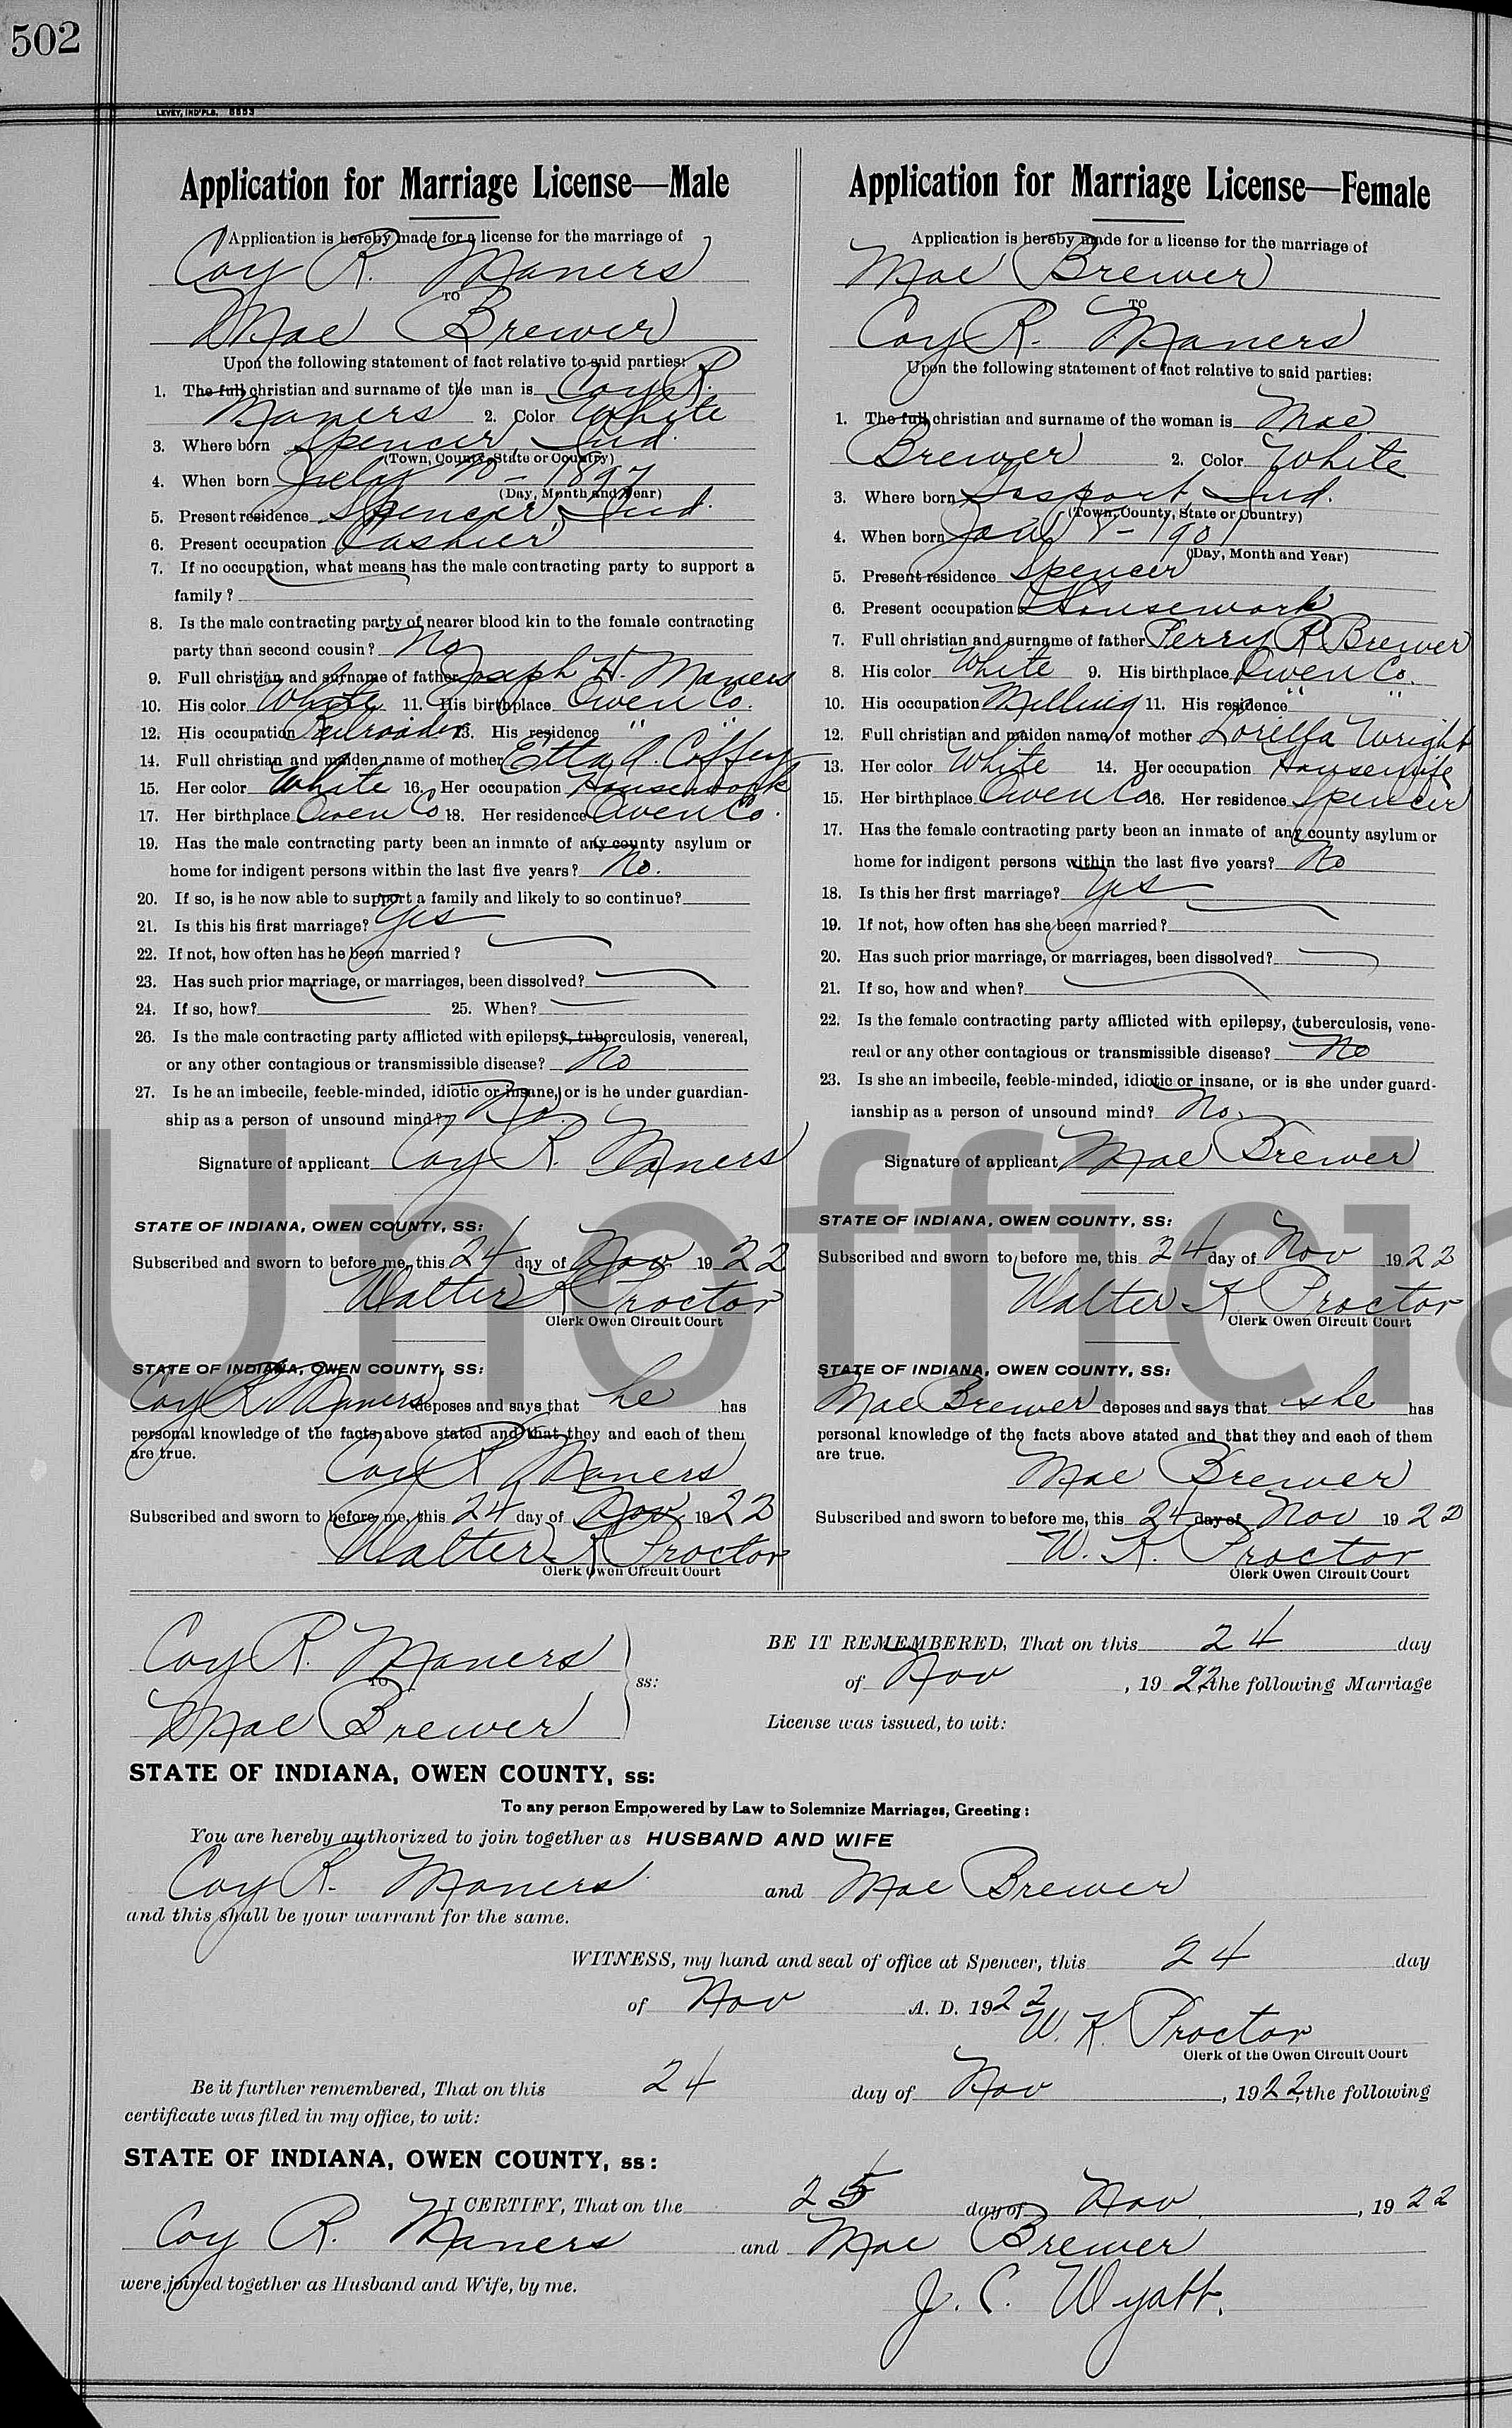 502
LEVEY, IND'PLS. 8553
Application for Marriage License—Male
Application is hereby made for a license for the marriage of
Coy R. Maners
TO
Mae Brewer
Upon the following statement of fact relative to said parties:
1. The full christian and surname of the man is Coy R.
Maners 2. Color White
3. Where born Spencer, Ind.
(Town, County, State or Country)
4. When born July 1897
(Day, Month and Year)
5. Present residence Spencer, Ind.
6. Present occupation Cashier
7. If no occupation, what means has the male contracting party to support a
family?
8. Is the male contracting party of nearer blood kin to the female contracting
party than second cousin? No
9. Full christian and surname of father Joseph H. Maners
10. His color White 11. His birthplace Owen Co.
12. His occupation Railroader 13. His residence " "
14. Full christian and maiden name of mother Etta A. Coffey
15. Her color White 16. Her occupation Housework
17. Her birthplace Owen Co 18. Her residence Owen Co.
19. Has the male contracting party been an inmate of any county asylum or
home for indigent persons within the last five years? No.
20. If so, is he now able to support a family and likely to so continue?
21. Is this his first marriage? Yes
22. If not, how often has he been married?
23. Has such prior marriage, or marriages, been dissolved?
24. If so, how? 25. When?
26. Is the male contracting party afflicted with epilepsy, tuberculosis, venereal,
or any other contagious or transmissible disease? No
27. Is he an imbecile, feeble-minded, idiotic or insane, or is he under guardian-
ship as a person of unsound mind? No.
Signature of applicant Coy R. Maners
STATE OF INDIANA, OWEN COUNTY, SS:
Subscribed and sworn to before me, this 24 day of Nov 1922
Walter K Proctor
Clerk Owen Circuit Court
STATE OF INDIANA, OWEN COUNTY, SS:
Coy R Maners deposes and says that he has
personal knowledge of the facts above stated and that they and each of them
are true.
Coy R Maners
Subscribed and sworn to before me, this 24 day of Nov 1922
Walter K Proctor
Clerk Owen Circuit Court
Application for Marriage License—Female
Application is hereby made for a license for the marriage of
Mae Brewer
TO
Coy R. Maners
Upon the following statement of fact relative to said parties:
1. The full christian and surname of the woman is Mae
Brewer 2. Color White
3. Where born Gosport, Ind.
(Town, County, State or Country)
4. When born 1901
(Day, Month and Year)
5. Present residence Spencer
6. Present occupation Housework
7. Full christian and surname of father Perry R Brewer
8. His color White 9. His birthplace Owen Co.
10. His occupation Milling 11. His residence " "
12. Full christian and maiden name of mother Lorella Wright
13. Her color White 14. Her occupation Housewife
15. Her birthplace Owen Co 16. Her residence Spencer
17. Has the female contracting party been an inmate of any county asylum or
home for indigent persons within the last five years? No
18. Is this her first marriage? Yes
19. If not, how often has she been married?
20. Has such prior marriage, or marriages, been dissolved?
21. If so, how and when?
22. Is the female contracting party afflicted with epilepsy, tuberculosis, vene-
real or any other contagious or transmissible disease? No
23. Is she an imbecile, feeble-minded, idiotic or insane, or is she under guard-
ianship as a person of unsound mind? No.
Signature of applicant Mae Brewer
STATE OF INDIANA, OWEN COUNTY, SS:
Subscribed and sworn to before me, this 24 day of Nov 1922
Walter K. Proctor
Clerk Owen Circuit Court
STATE OF INDIANA, OWEN COUNTY, SS:
Mae Brewer deposes and says that she has
personal knowledge of the facts above stated and that they and each of them
are true.
Mae Brewer
Subscribed and sworn to before me, this 24 day of Nov 1922
W. K. Proctor
Clerk Owen Circuit Court
Unofficia
Coy R. Maners
TO
Mae Brewer
ss:
BE IT REMEMBERED, That on this 24 day
of Nov, 1922, the following Marriage
License was issued, to wit:
STATE OF INDIANA, OWEN COUNTY, ss:
To any person Empowered by Law to Solemnize Marriages, Greeting:
You are hereby authorized to join together as HUSBAND AND WIFE
Coy R. Maners and Mae Brewer
and this shall be your warrant for the same.
WITNESS, my hand and seal of office at Spencer, this 24 day
of Nov A. D. 1922
W. K. Proctor
Clerk of the Owen Circuit Court
Be it further remembered, That on this 24 day of Nov, 1922, the following
certificate was filed in my office, to wit:
STATE OF INDIANA, OWEN COUNTY, ss:
I CERTIFY, That on the 25 day of Nov, 1922
Coy R. Maners and Mae Brewer
were joined together as Husband and Wife, by me.
J. C. Wyatt.